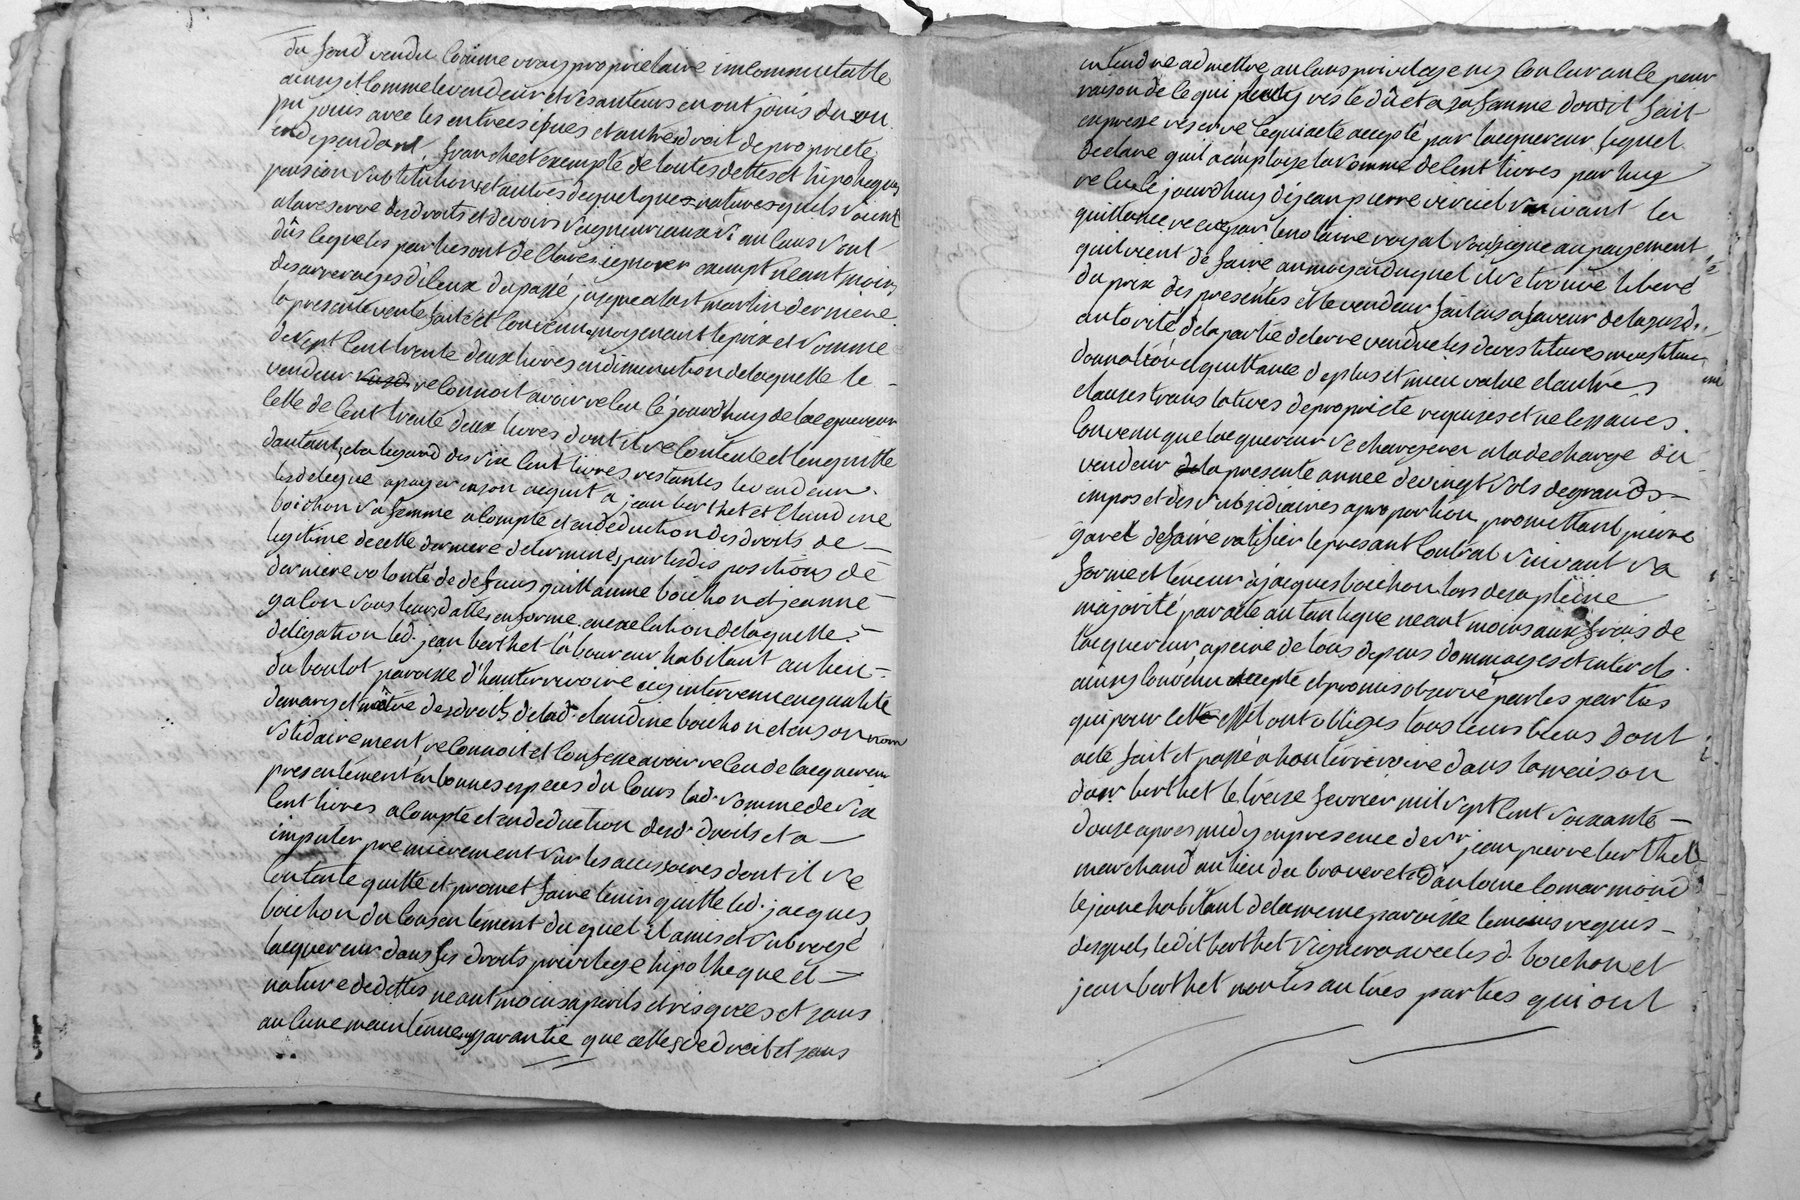 du fond vendu comme vray proprietaire incommutable
ainsy et comme le vendeur et ses auteurs en ont jouis du ou
pu jouir avec les entrees issues et autres droit de propriete
en dependant, franche et exempte de toutes dettes et hipoteques
pension substitutions et autres de quelques natures quels soient
a la reserve des droits et devoirs seigneuriaux si aucuns sont
dûs lequels les parties ont declarés ignorer exempt neant moins
des arrerages d'iceux du passé jusque a la st martin derniere
la presente vente faite et convenue moyenant le prix et somme
de sept cent trente deux livres en diminution de laquelle le
vendeur reconnoit avoir receu cé jourd'huy de lacquereur
celle de cent trente deux livres dont il se contente et l'en quitte
d'autant, et a legard des six cent livres restantes le vendeur
les delegue a payer en son acquit a jean berthet et claudine
boichon sa femme a compte et en deduction des droits de
legitime de cette derniere determinés par les dispositions de
derniere volonté de defunts guillaume boichon et jeanne
galon sous leurs dattes en forme. en execution de laquelle
delegation led. jean berthet laboureur habitant au lieu
du boulot paroisse d'hauterivoire icy intervenu en qualité
de mary et maître des droits de lad. claudine boichon et en son nom
solidairement reconnoit et confesse avoir receu de lacquereur
presentement en bonnes especes du cours lad. somme de six
cent livres a compte et en deduction desd. droits et a
imputer premierement sur les accessoires dont il se
contente quitte et promet faire tenir quitte led. jacques
boichon du consentement du quel il a mis et subrogé
lacquereur dans ses droits privilege hipotheque et
nature de dettes neant moins a perils et risques et sans
aucune maintenue garantie que celle de droit et sans
entendre admettre aucuns privilege ny concurance pour
raison de ce qui peut y reste dû et a sa femme dont il fait
expresse reserve ce qui a eté accepté par lacquereur lequel
declare quil a employe la somme de cent livres par luy
receu cé jourd'huy de jean pierre suivant la
quittance recue par le notaire royal soussigne au payement
quil vient de faire au moyen du quel il se trouve liberé
du prix des presentes et le vendeur fait en sa faveur de lacquer.
autorité de la partie de terre vendue les devestitures investitures
donnation et quittance de plus et mieu value et autres
clauses translatives de propriete requises et necessaires
convenu que lacquereur se chargera a la decharge du
vendeur de la presente année de vingt sols de grands
impos et des subsidiaires a proportion, promettant pierre
garel de faire ratifier le present contrat suivant sa
forme et teneur a jacques boichon lors de sa pleine
majorité par acte autantique neant moins aux frais de
lacquereur, a peine de tous depens dommages et interets
ainsy convenu accepté et promis observé par les parties
qui pour cette effet ont obligés tous leurs biens dont
acte fait et passé a hauterivoire dans la maison
dud. berthet le treize fevrier mil sept cent soixante
douze apres midy en presence de sr jean pierre berthet
marchand au lieu du et d'antoine
le jeune habitant de la meme paroisse temoins requis
desquels ledit berthet signera avec les d. boichon et
jean berthet non les autres parties qui ont